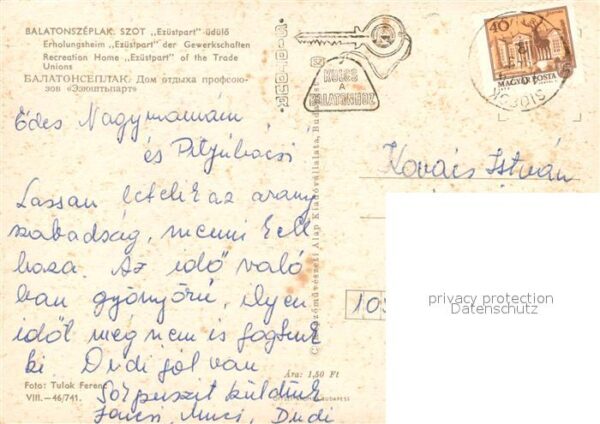 BALATONSZÉPLAK: SZOT „Ezüstpart"-üdülő
Erholungsheim „Ezüstpart" der Gewerkschaften
Recreation Home „Ezüstpart" of the Trade
Unions
БАЛАТОНСЕПЛАК: Дом отдыха профсою-
зов «Эзюштьпарт»
Édes Nagymamám
és Pityubácsi
Lassan letelik az arany
szabadság, menni kell
haza. Az idő való
ban gyönyörű, ilyen
időt még nem is fogtunk
ki. Dudi jól van
Sok puszit küldünk
Jancsi, Muci, Dudi
Foto: Tulok Ferenc
VIII.—46/741.
Ára: 1,50 Ft
BUDAPEST
Képzőművészeti Alap Kiadóvállalata, Budapest
SIÓFOK
KULCS
A
BALATONHOZ
40
MAGYAR POSTA
SIÓFOK
Kovács István
105
privacy protection
Datenschutz